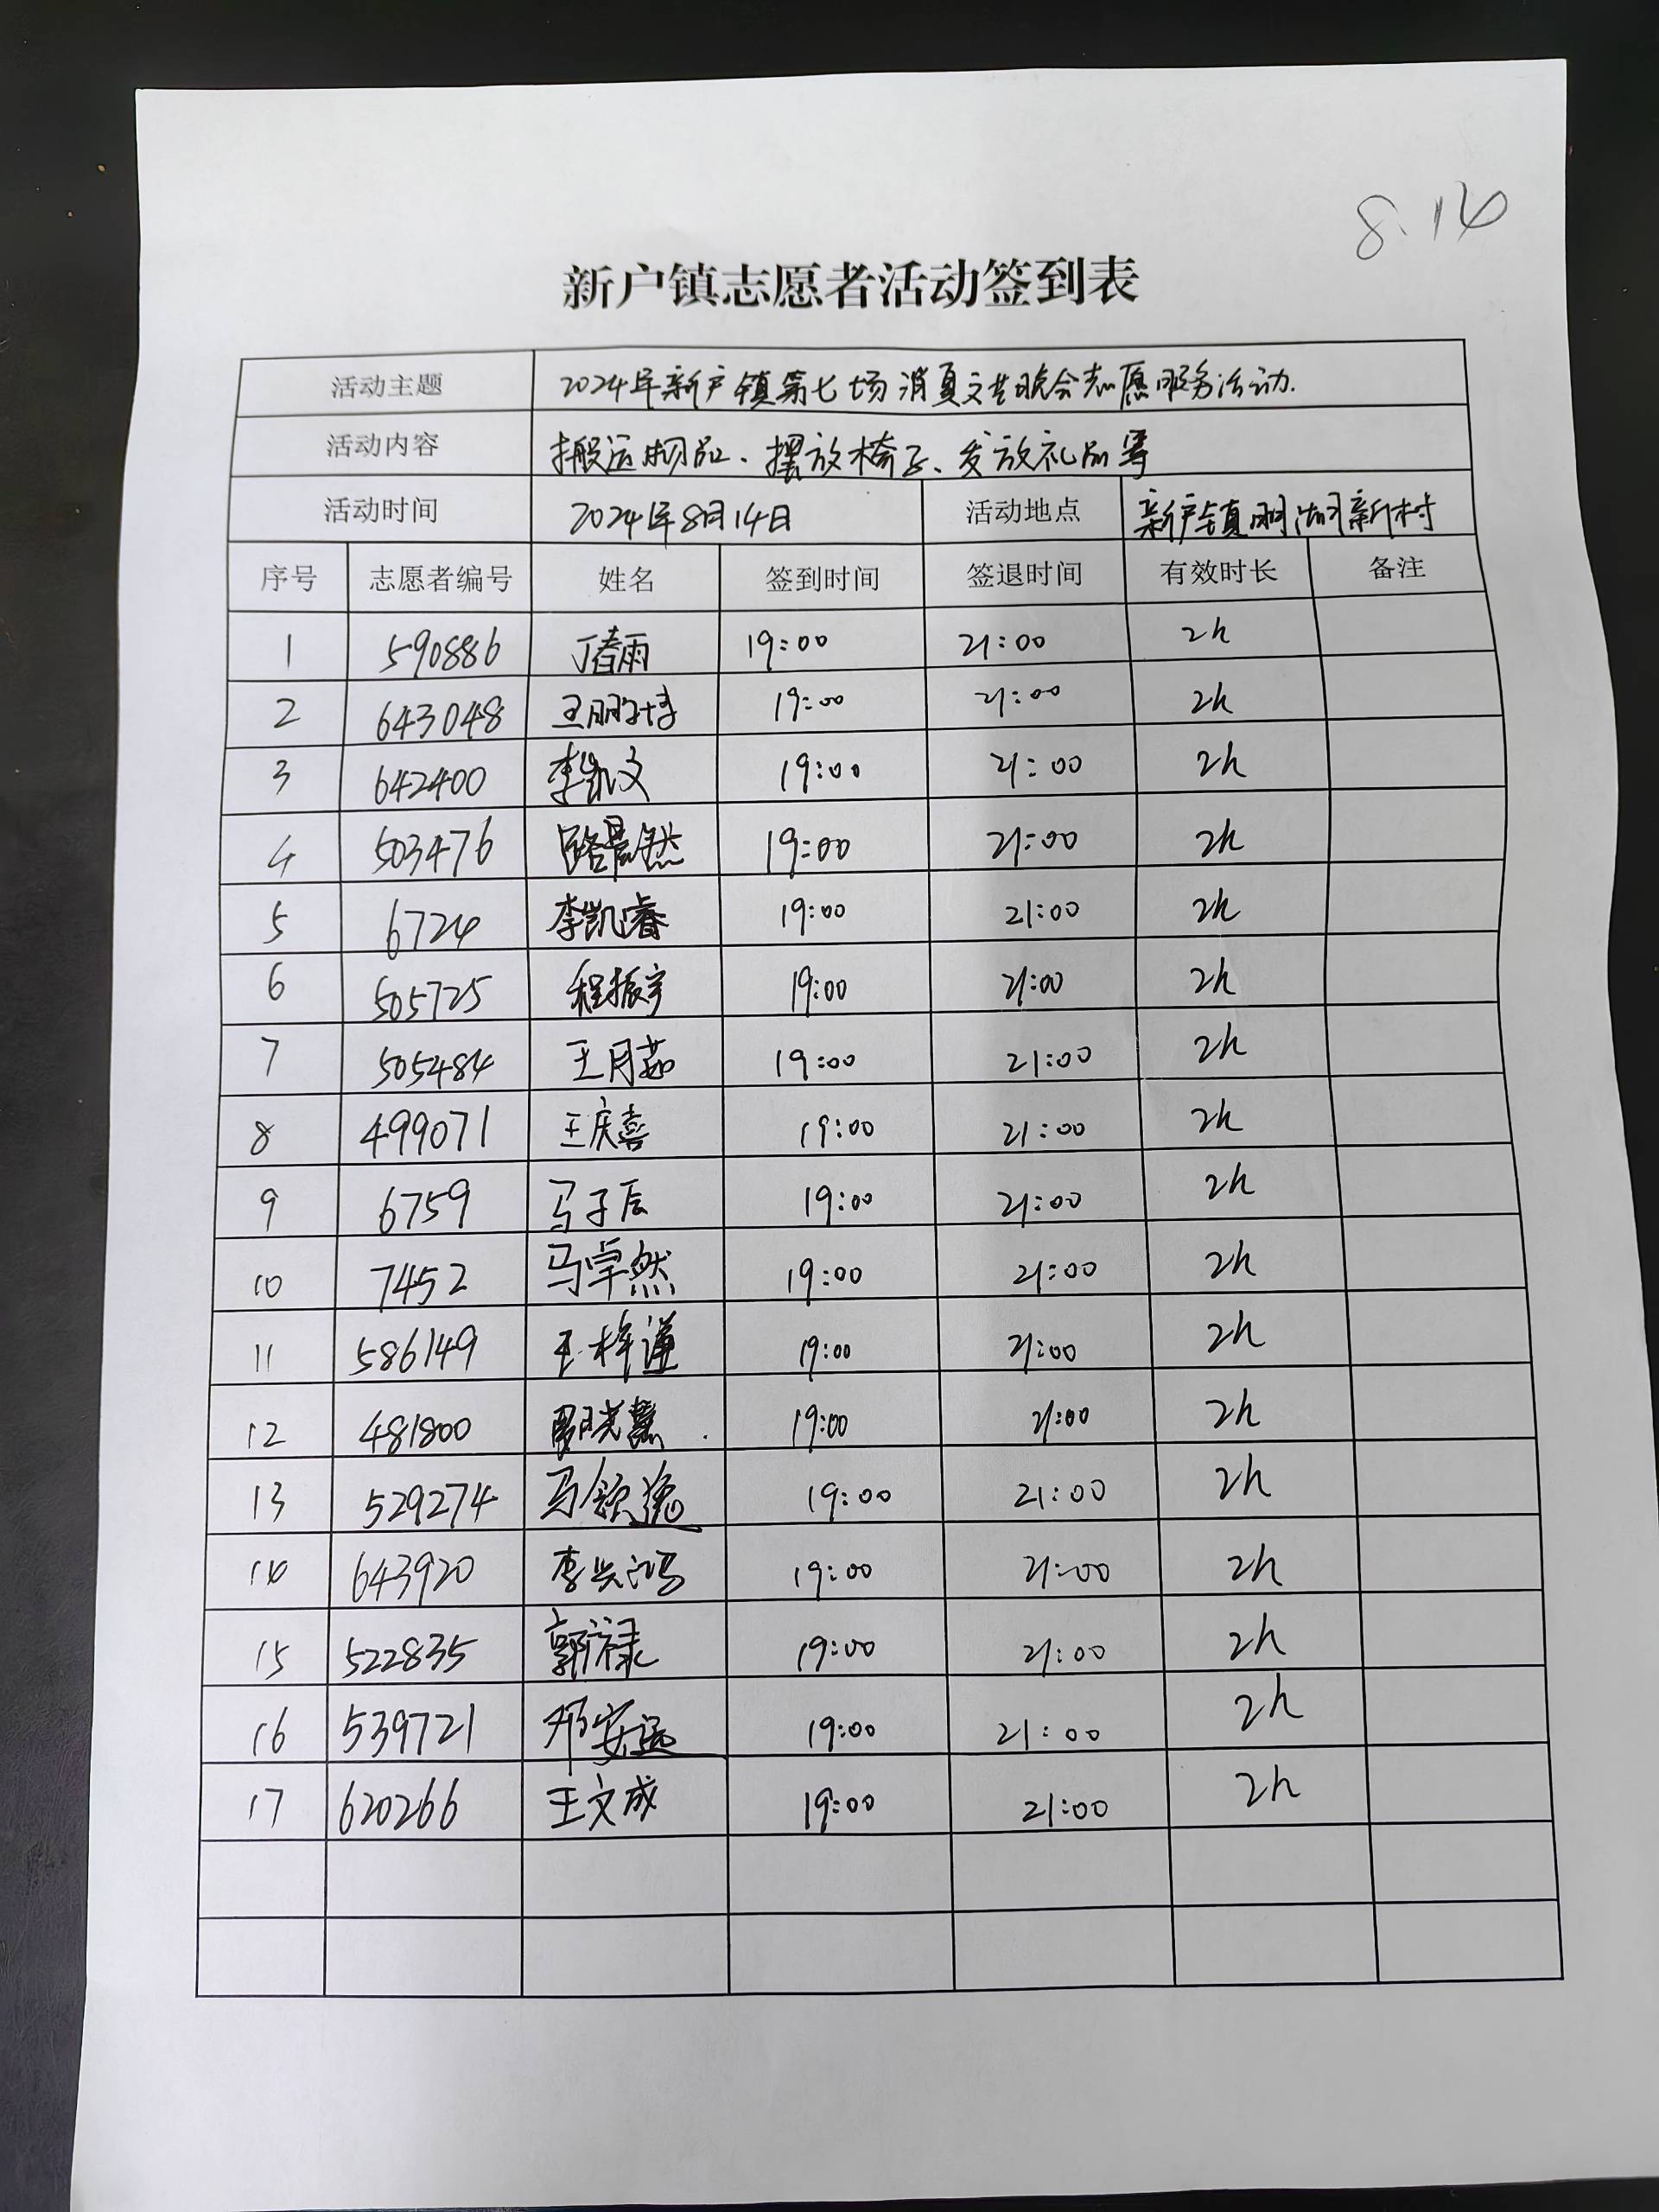 8.14
新户镇志愿者活动签到表
活动主题 2024年新户镇第七场消夏文艺晚会志愿服务活动.
活动内容 搬运物品、摆放椅子、发放礼品等
活动时间 2024年8月14日 活动地点 新户镇明湖新村
序号 志愿者编号 姓名 签到时间 签退时间 有效时长 备注
1 590886 丁春雨 19:00 21:00 2h
2 643048 王鹏博 19:00 21:00 2h
3 642400 李凯文 19:00 21:00 2h
4 503476 路晨然 19:00 21:00 2h
5 6724 李凯睿 19:00 21:00 2h
6 505725 程振宇 19:00 21:00 2h
7 505484 王月茹 19:00 21:00 2h
8 499071 王庆喜 19:00 21:00 2h
9 6759 马子辰 19:00 21:00 2h
10 7452 马卓然 19:00 21:00 2h
11 586149 王梓谦 19:00 21:00 2h
12 481800 19:00 21:00 2h
13 529274 19:00 21:00 2h
14 643920 李兴鸿 19:00 21:00 2h
15 522835 郭禄 19:00 21:00 2h
16 539721 邓安远 19:00 21:00 2h
17 620266 王文成 19:00 21:00 2h